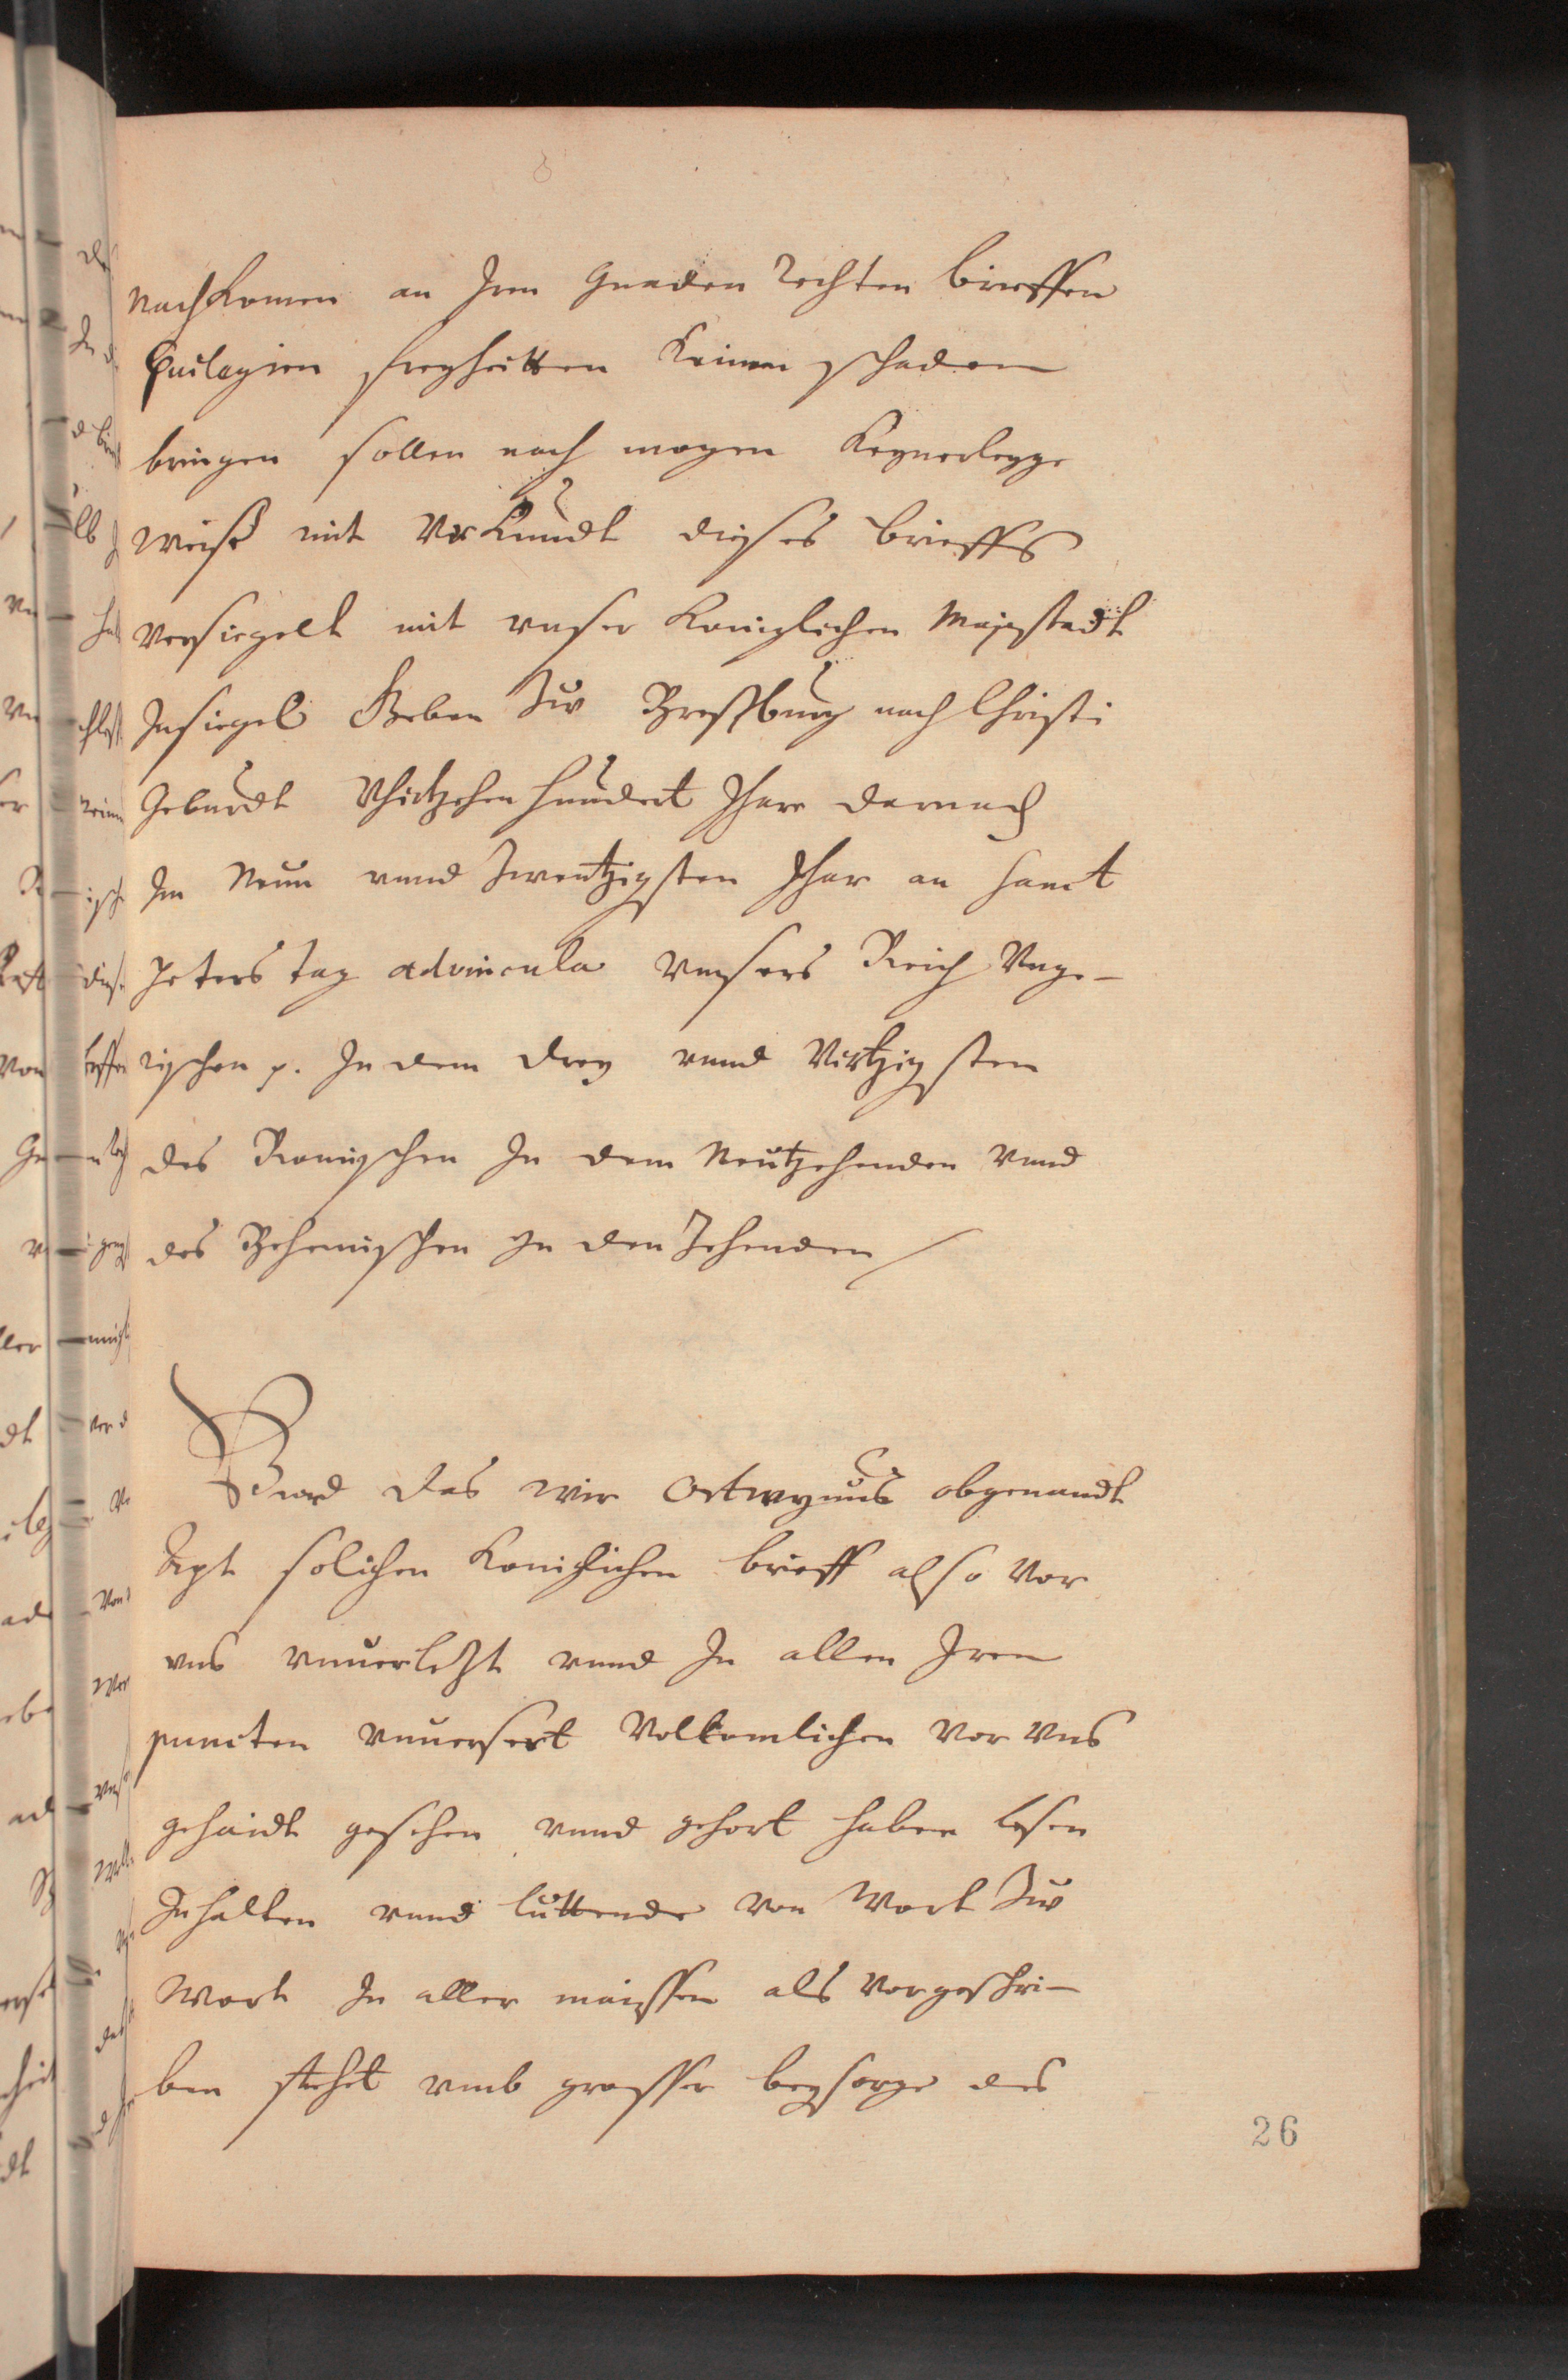 nachkomen an Iren Gnaden Rechten brieffen
Priulegien freyheitten keinen schaden
bringen sollen noch mogen keynerleyge
weiß mit Vrkundt dieses brieffs
versiegelt mit vnser koniglichen Mayestadt
Insiegel Geben Zu Presspurg nach Christi
Geburdt Vhirtzehen hundert Jhare darnach
Im Neun vnnd Zwentzigsten Jhar an Sanct
Peters tag advincula vnsers Reich Vnge-
rischen p. In dem drey vnnd Virtzigsten
des Romischen In dem Neutzehenden vnnd
des Behemischen In den Zehenden /
Vnnd das wir Ortwynus obgenandt
Apt solichen konichlichen brieff also vor
vns vnuerletzt vnnd In allen Iren
puncten vnuersert Volkomlichen vor vns
gehaidt gesehen vnnd gehort haben lesen
Inhalten vnnd luttende von Wort Zu
Wort In aller maissen als vorgeschri-
ben stehet vmb grosser beysorge des
26